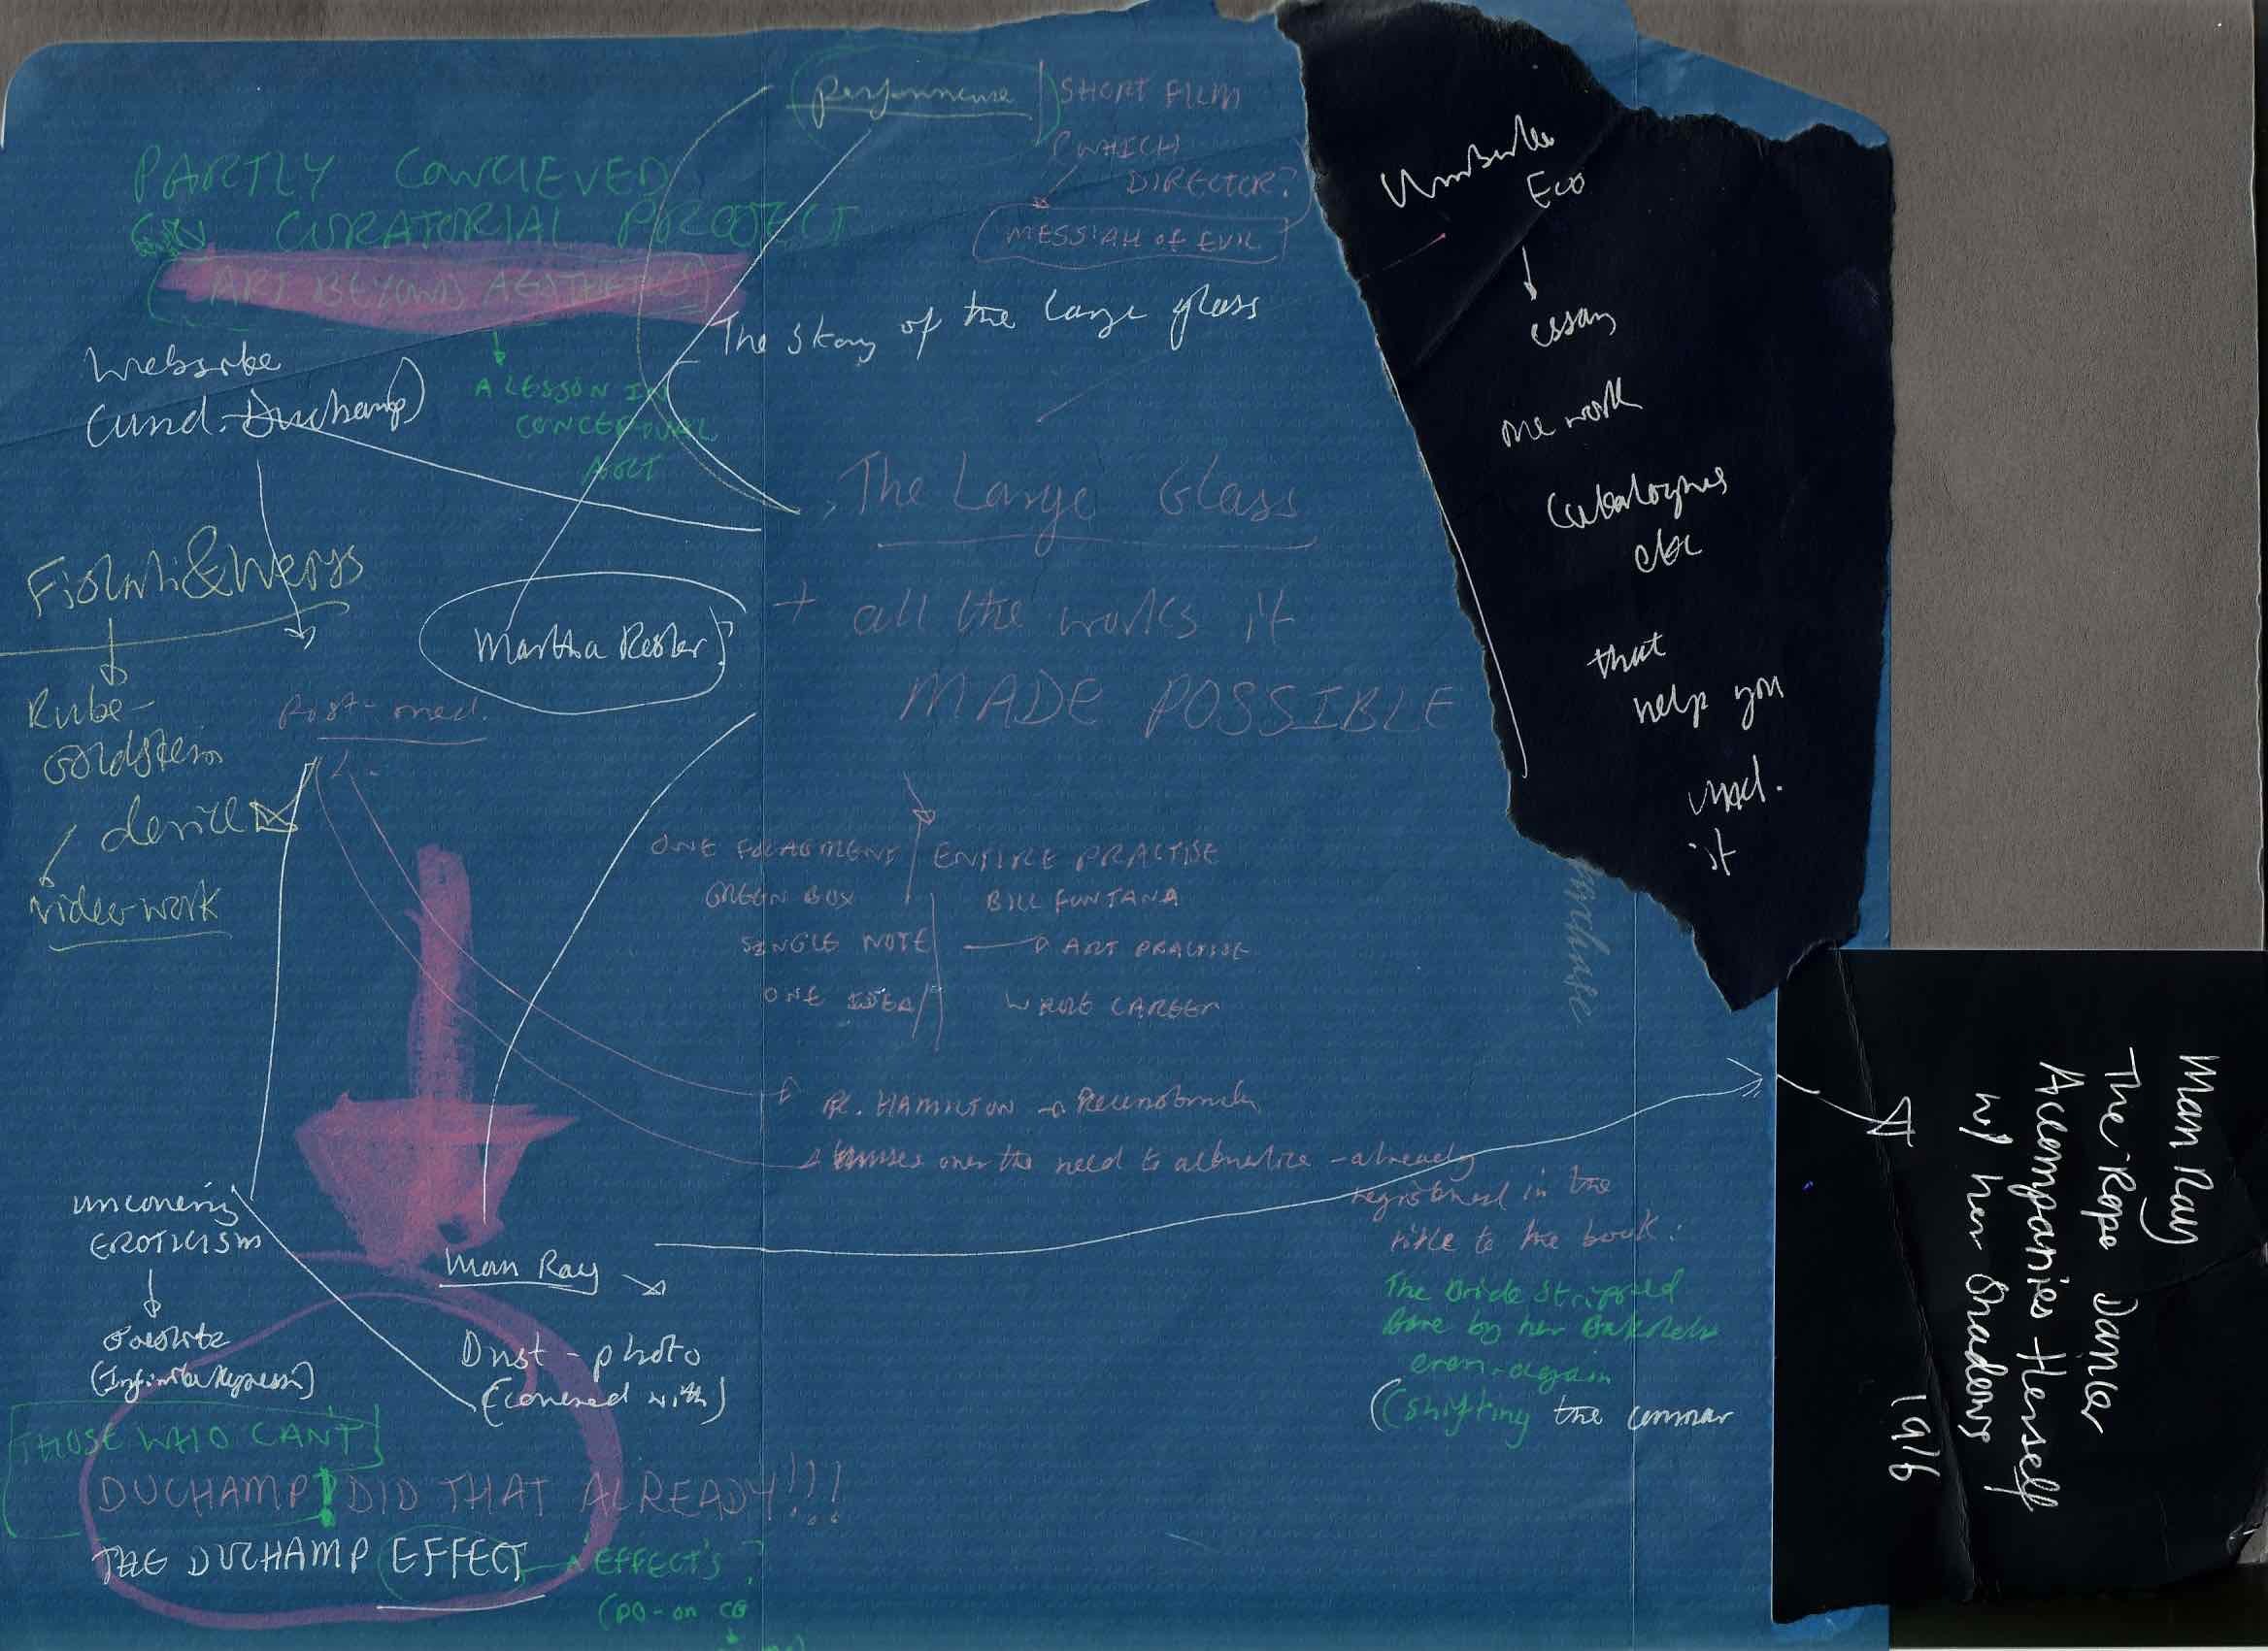 performance
SHORT FILM
WHICH
DIRECTOR?
MESSIAH of EVIL
PARTLY CONCIEVED
CURATORIAL PROJECT
ART BEYOND AESTHETICS
A LESSON IN
CONCEPTUAL
ART
Website
(und. Duchamp)
The story of the large glass
The Large Glass
+ all the works it
MADE POSSIBLE
Rube-
Goldstein
device
video work
Martha Rosler?
Post-med.
ONE FRAGMENT
ENTIRE PRACTISE
GREEN BOX
BILL FONTANA
SINGLE NOTE
ART PRACTISE
ONE IDEA
WHOLE CAREER
R. HAMILTON
muses over the need to
- already
registered in the
title to the book:
The Bride Stripped
Bare by her Bachelors
even-again
(shifting the comma
uncovering
EROTICISM
(Infinite Regress)
Man Ray
Dust-photo
(covered with)
THOSE WHO CANT
DUCHAMP! DID THAT ALREADY!!!
THE DUCHAMP EFFECT
EFFECT'S?
Umberto
Eco
essay
one work
Catalogues
etc
that
help you
und.
it
Man Ray
The Rope Dancer
Accompanies Herself
w/ her Shadows
1916